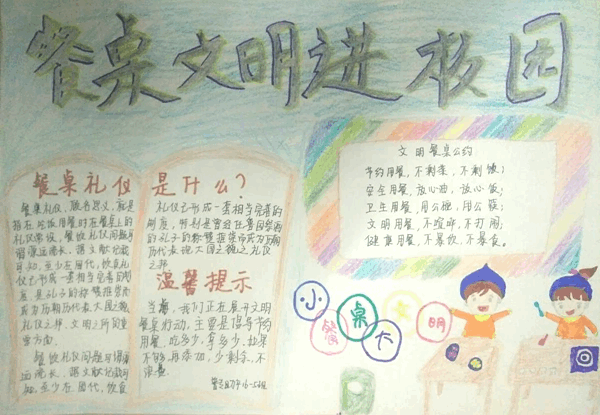 餐桌文明进校园
餐桌礼仪
餐桌礼仪，顾名思义，就是
指在吃饭用餐时在餐桌上的
礼仪常识，餐饮礼仪问题可
谓源远流长，据文献记载
可知，至少在周代，饮食礼
仪已形成一套相当完善的制
度，是孔子的称赞推崇而
成为历朝历代表现大国之貌
礼仪之邦、文明之所的重
要方面。
餐饮礼仪问题可谓源
远流长，据文献记载可
知，至少在周代，饮食
是什么？
礼仪已形成一套相当完善的
制度，特别是曾任鲁国祭酒
的孔子的称赞推崇而成为历朝
历代表现大国之貌之礼仪
之邦
温馨提示
当前，我们正在展开文明
餐桌行动，主要是倡导节约
用餐，吃多少，拿多少，如果
不够，再添加，少剩余，不
浪费
文明餐桌公约
节约用餐，不剩菜，不剩饭；
安全用餐，放心西，放心饭；
卫生用餐，用公地，用公筷；
文明用餐，不喧哗，不打闹；
健康用餐，不暴饮，不暴食。
小餐桌大文明